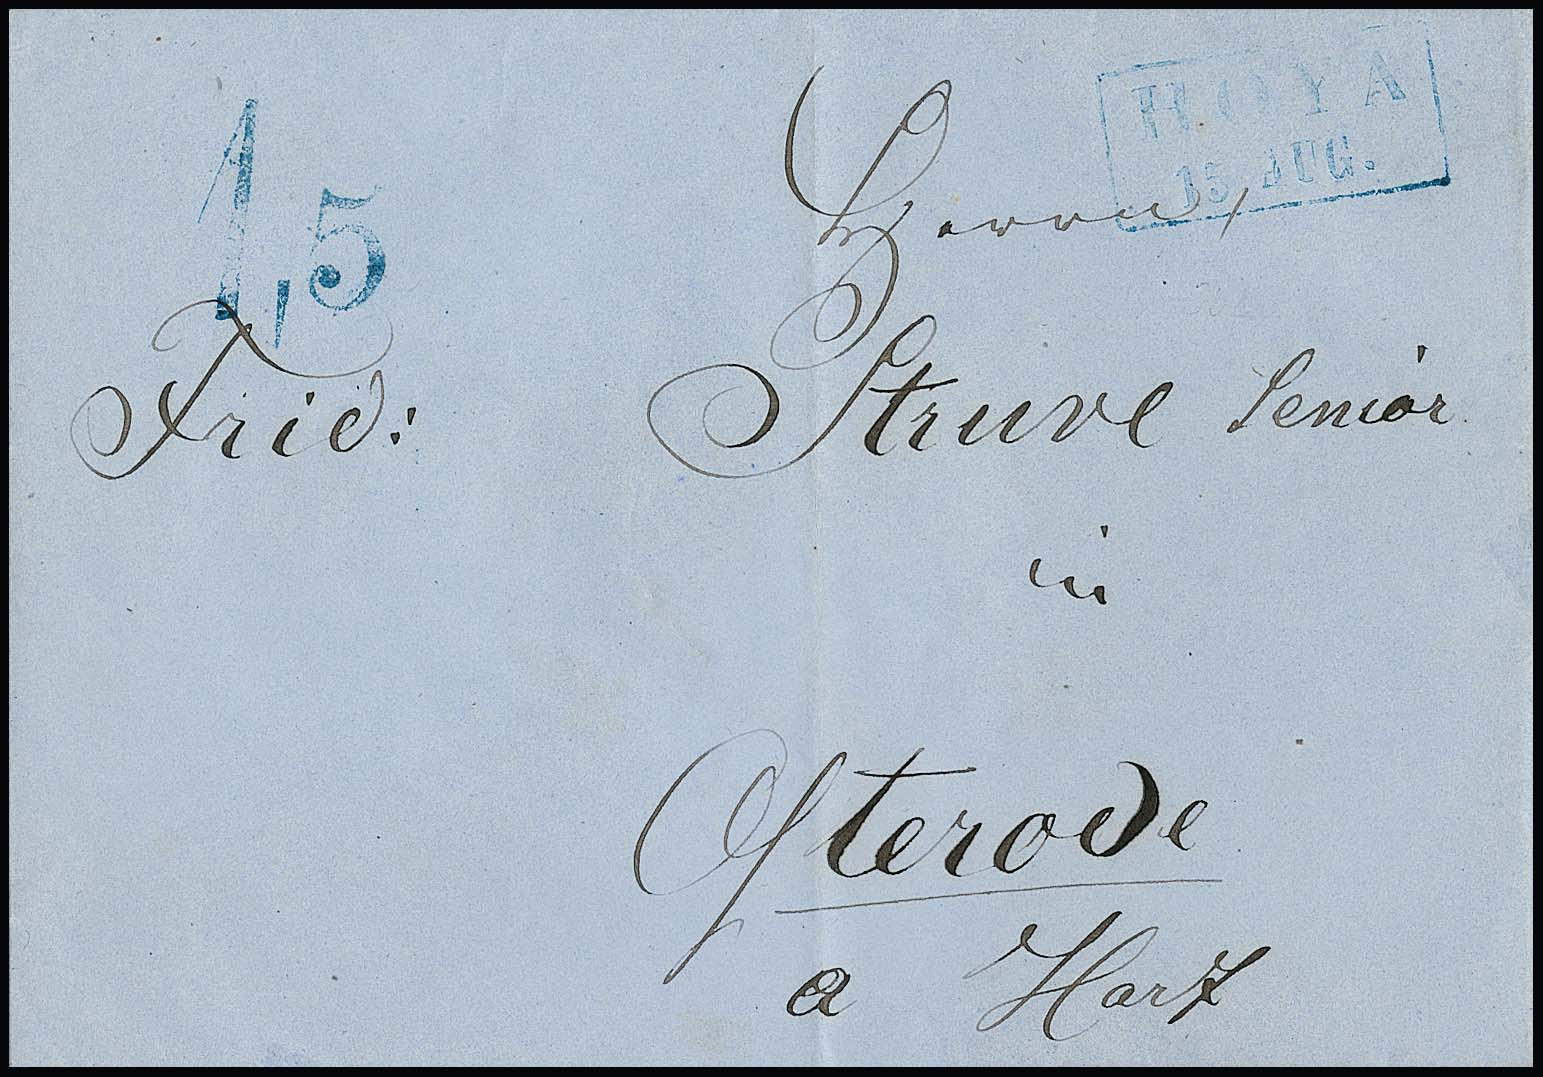 HOYA
15 AUG.
1,5
Herrn
Fried: Struve Senior
in
Osterode
a Harz